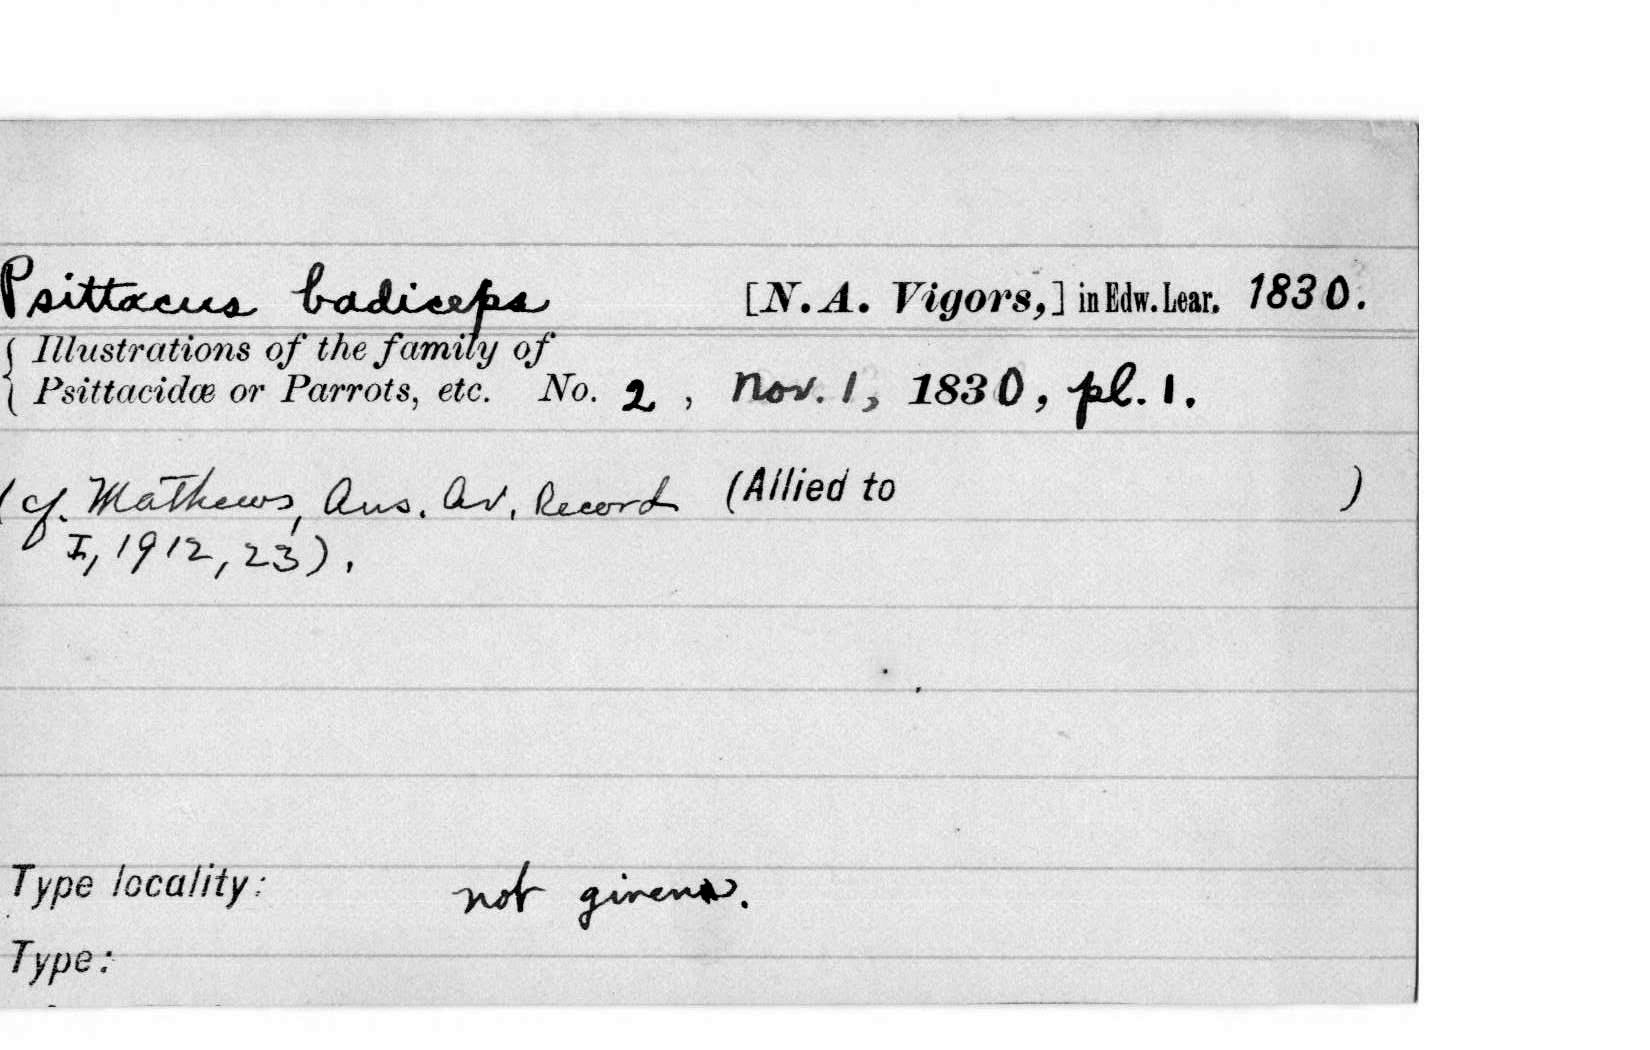 Psittacus badiceps [N. A. Vigors,] in Edw. Lear. 1830.
{ Illustrations of the family of
Psittacidæ or Parrots, etc. No. 2, Nov. 1, 1830, pl. 1.
(cf. Mathews, Aus. Av. Record (Allied to )
I, 1912, 23).
Type locality: not given.
Type: